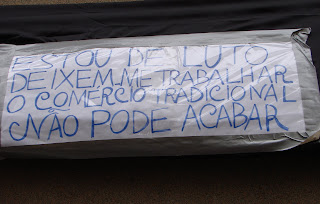 ESTOU DE LUTO
DEIXEM.ME TRABALHAR
O COMERCIO TRADICIONAL
NÃO PODE ACABAR